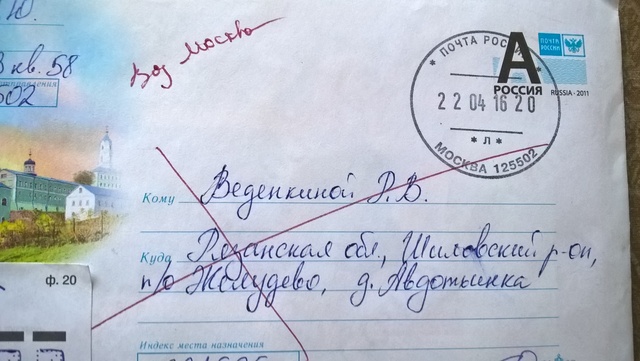 Ю
кв. 58
502
Воз Москва
ПОЧТА РОССИИ
22 04 16 20
* Л *
МОСКВА 125502
А
РОССИЯ
ПОЧТА РОССИИ
RUSSIA · 2011
Кому Веденкиной Р.В.
Куда Рязанская обл., Шиловский р-он,
п/о Желудево, д. Авдотьинка
ф. 20
Индекс места назначения